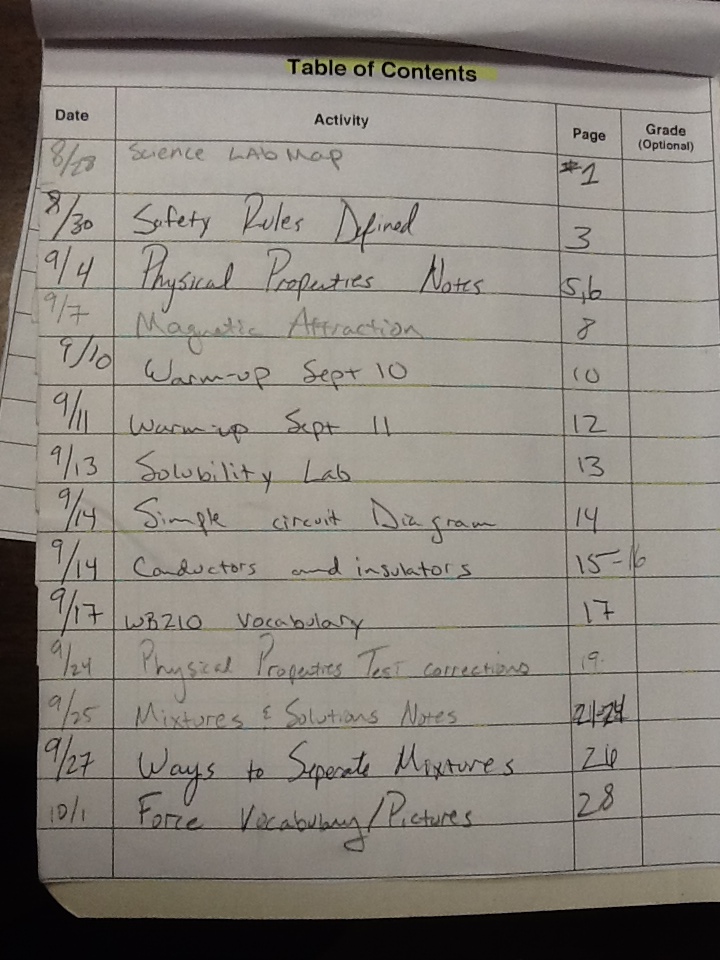 Table of Contents
Date Activity Page Grade (Optional)
8/28 Science LAB Map #1
8/30 Safety Rules Defined 3
9/4 Physical Properties Notes 5,6
9/7 Magnetic Attraction 8
9/10 Warm-up Sept 10 10
9/11 Warm-up Sept 11 12
9/13 Solubility Lab 13
9/14 Simple circuit Diagram 14
9/14 Conductors and insulators 15-16
9/17 WB210 Vocabulary 17
9/24 Physical Properties Test corrections 19
9/25 Mixtures & Solutions Notes 21-24
9/27 Ways to Seperate Mixtures 26
10/1 Force Vocabulary/Pictures 28